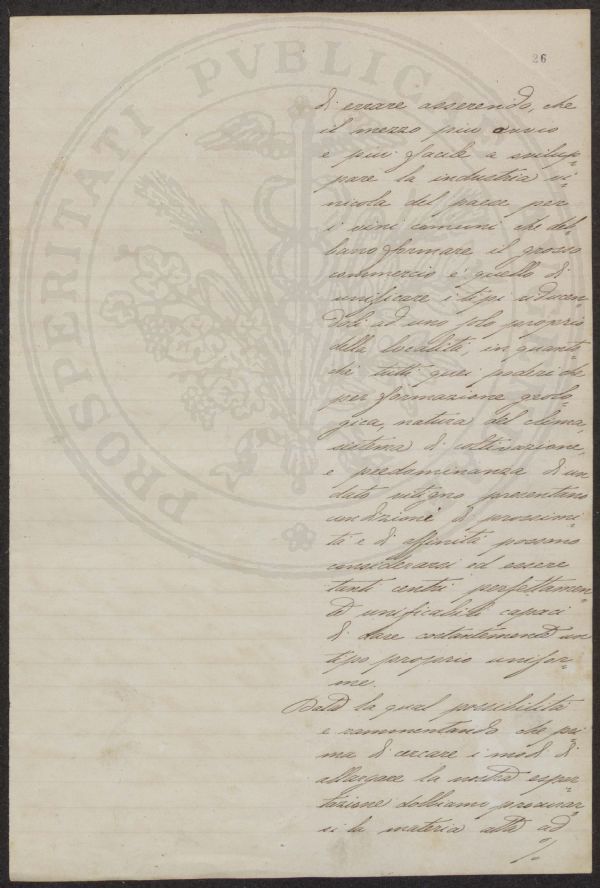 26
PROSPERITATI PVBLICAE
di errare asserendo, che
il mezzo più ovvio
e più facile a svilup-
pare la industria vi-
nicola del paese per
i vini comuni che deb-
bano formare il grosso
commercio è quello di
unificare i tipi riducen-
doli ad uno solo proprio
della località, in quanto-
chè tutti quei poderi che
per formazione geolo-
gica, natura del clima,
sistema di coltivazione,
e predominanza di un
dato vitigno presentano
condizioni di prossimi-
tà e di affinità possono
considerarsi ed essere
tanti centri perfettamen-
te unificabili capaci
di dare costantemente un
tipo proprio unifor-
me.
Data la qual possibilità
e rammentando che pri-
ma di cercare i modi di
allargare la nostra espor-
tazione dobbiamo procurar-
ci la materia atta ad
%